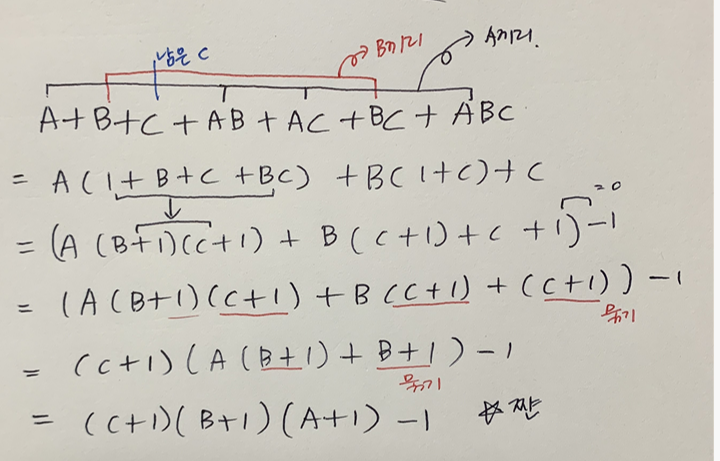 남은 C
B끼리
A끼리.
A+B+C + AB + AC + BC + ABC
= A(1 + B+C +BC) +B(1+C)+C
= (A (B+1)(C+1) + B(C+1)+C +1)-1
=0
= (A(B+1)(C+1) + B(C+1) + (C+1)) -1
묶기
= (C+1)(A(B+1) + B+1) -1
묶기
= (C+1)(B+1)(A+1) -1 ☆짠